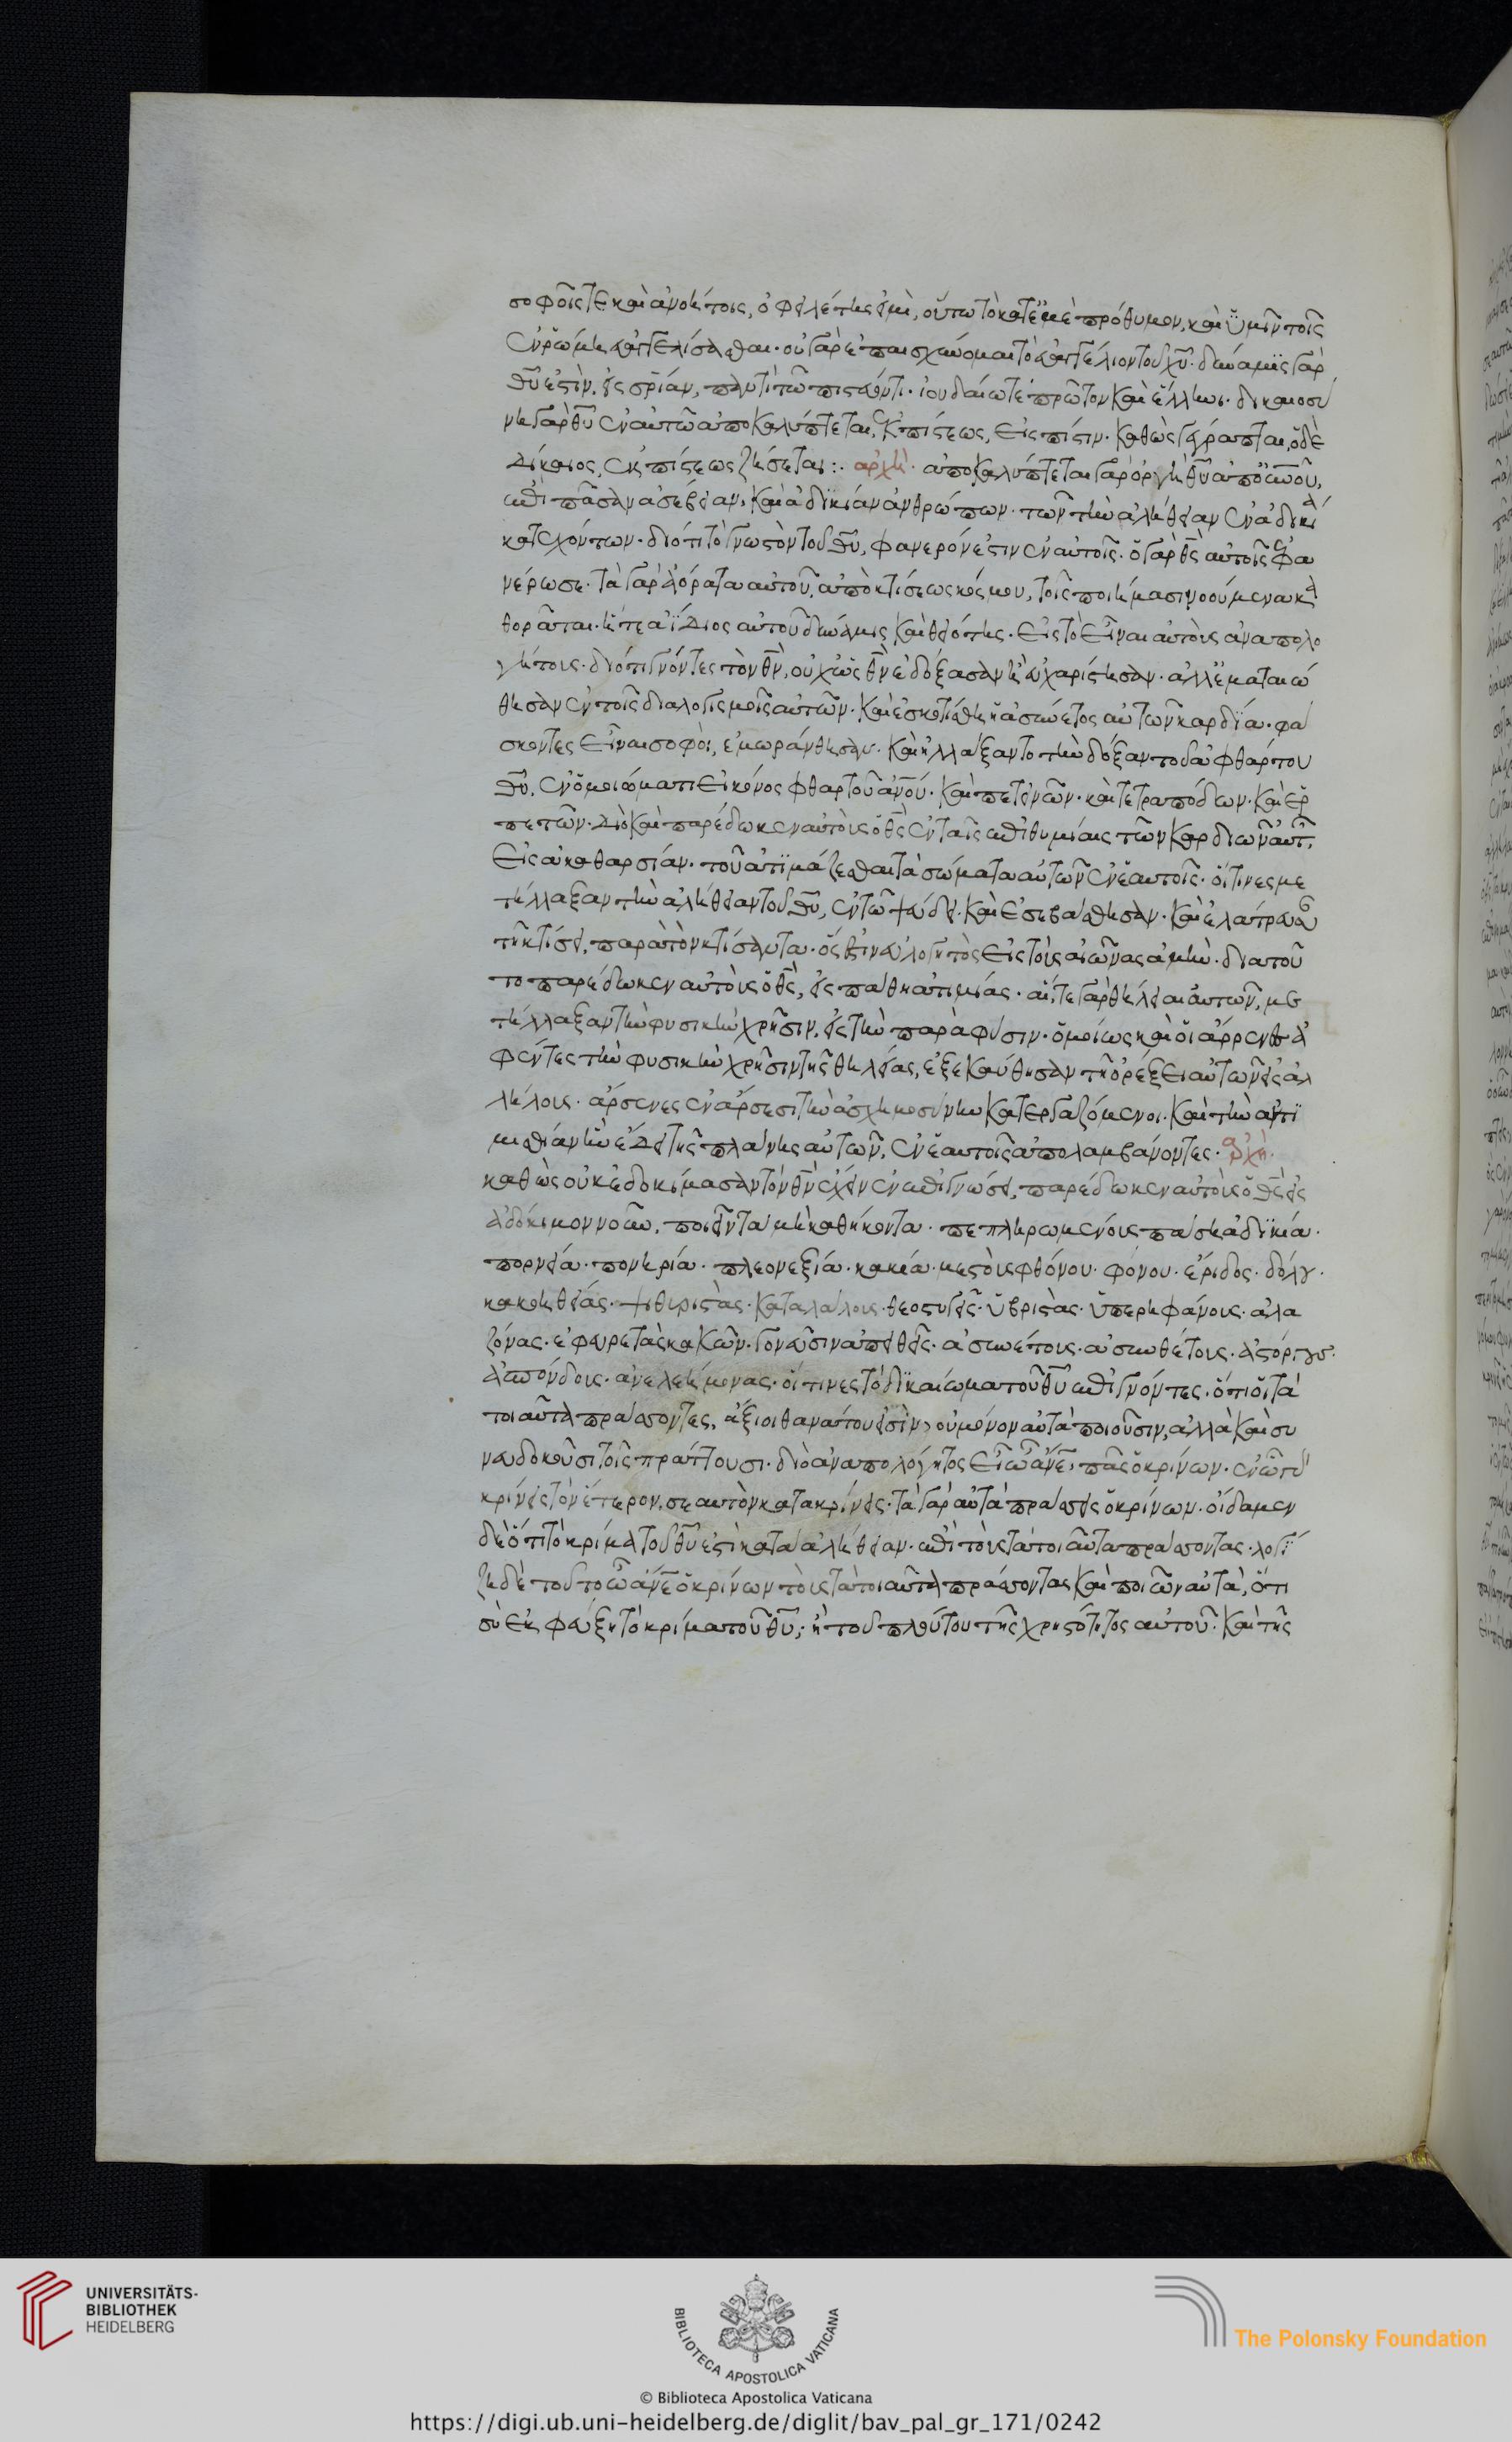 σοφοῖς τε καὶ ἀνοήτοις, ὀφειλέτης εἰμὶ, οὕτω τὸ κατ ἐμὲ πρόθυμον, καὶ ὑμῖν τοῖς
ἐν ῥώμη εὐαγγελίσασθαι· οὐ γὰρ ἐπαισχύνομαι τὸ εὐαγγέλιον τοῦ χῡ· δύναμις γὰρ
θῡ ἐστὶν, εἰς σρ̄ίαν, παντὶ τῶ πιστεύοντι· ἰουδαίω τὲ πρῶτον καὶ ἕλληνι· δικαιοσύ
νη γὰρ θῡ ἐν αὐτῶ ἀποκαλύπτεται, ἐκ πίστεως, εἰς πίστιν· καθὼς γέγραπται, ὁ δὲ
δίκαιος, ἐκ πίστεως ζήσεται:· ἀρχὴ· ἀποκαλύπτεται γὰρ ὀργὴ θῡ ἀπ οὐνοῡ,
ἐπὶ πᾶσαν ἀσέβειαν, καὶ ἀδικίαν ἀνθρώπων· τῶν τὴν ἀλήθειαν ἐν ἀδικία
κατεχόντων· διότι τὸ γνωστὸν τοῦ θῡ, φανερόν ἐστιν ἐν αὐτοῖς· ὁ γὰρ θς̄ αὐτοῖς ἐφα
νέρωσε· τὰ γὰρ ἀόρατα αὐτοῦ, ἀπὸ κτίσεως κόσμου, τοῖς ποιήμασι νοούμενα κα
θορᾶται· ἥ τε ἀΐδιος αὐτοῦ δύναμις καὶ θειότης· εἰς τὸ εἶναι αὐτοὺς ἀναπολο
γήτους· διότι γνόντες τὸν θν̄, οὐχ ὡς θν̄ ἐδόξασαν ἢ εὐχαρίστησαν· ἀλλ ἐματαιώ
θησαν ἐν τοῖς διαλογισμοῖς αὐτῶν· καὶ ἐσκοτίσθη ἡ ἀσύνετος αὐτῶν καρδία· φά
σκοντες εἶναι σοφοὶ, ἐμωράνθησαν· καὶ ἤλλαξαν τὸ τὴν δόξαν τοῦ ἀφθάρτου
θῡ, ἐν ὁμοιώματι εἰκόνος φθαρτοῦ ἀνοῡ· καὶ πετεινῶν· καὶ τετραπόδων· καὶ ἑρ
πετῶν· διὸ καὶ παρέδωκεν αὐτοὺς ὁ θς̄ ἐν ταῖς ἐπιθυμίαις τῶν καρδιῶν αὐτῶν
εἰς ἀκαθαρσίαν· τοῦ ἀτιμάζεσθαι τὰ σώματα αὐτῶν ἐν ἑαυτοῖς· οἵτινες με
τήλλαξαν τὴν ἀλήθειαν τοῦ θῡ, ἐν τῶ ψεύδει· καὶ ἐσεβάσθησαν· καὶ ἐλάτρευσαν
τῆ κτίσει, παρὰ τὸν κτίσαντα· ὅς ἐστιν εὐλογητὸς εἰς τοὺς αἰῶνας ἀμὴν· διὰ τοῦ
το παρέδωκεν αὐτοὺς ὁ θς̄, εἰς πάθη ἀτιμίας· αἵ τε γὰρ θήλειαι αὐτῶν, με
τήλλαξαν τὴν φυσικὴν χρῆσιν, εἰς τὴν παρὰ φύσιν· ὁμοίως καὶ οἱ ἄρρενες ἀ
φέντες τὴν φυσικὴν χρῆσιν τῆς θηλείας, ἐξεκαύθησαν τῆ ὀρέξει αὐτῶν εἰς ἀλ
λήλους· ἄρσενες ἐν ἄρσεσι τὴν ἀσχημοσύνην κατεργαζόμενοι· καὶ τὴν ἀντι
μισθίαν ἣν ἔδει τῆς πλάνης αὐτῶν, ἐν ἑαυτοῖς ἀπολαμβάνοντες· ἀρχὴ·
καθὼς οὐκ ἐδοκίμασαν τὸν θν̄ ἔχειν ἐν ἐπιγνώσει, παρέδωκεν αὐτοὺς ὁ θς̄ εἰς
ἀδόκιμον νοῦν, ποιεῖν τὰ μὴ καθήκοντα· πεπληρωμένους πάση ἀδικία·
πορνεία· πονηρία· πλεονεξία· κακία· μεστοὺς φθόνου· φόνου· ἔριδος· δόλου·
κακοηθείας· ψιθυριστὰς· καταλάλους· θεοστυγεῖς· ὑβριστὰς· ὑπερηφάνους· ἀλα
ζόνας· ἐφευρετὰς κακῶν· γονεῦσιν ἀπειθεῖς· ἀσυνέτους· ἀσυνθέτους· ἀστόργους·
ἀσπόνδους· ἀνελεήμονας· οἵτινες τὸ δικαίωμα τοῦ θῡ ἐπιγνόντες· ὅτι οἱ τὰ
τοιαῦτα πράσσοντες, ἄξιοι θανάτου εἰσὶν, οὐ μόνον αὐτὰ ποιοῦσιν, ἀλλὰ καὶ συ
νευδοκοῦσι τοῖς πράττουσι· διὸ ἀναπολόγητος εἶ ὦ ἄνε̄, πᾶς ὁ κρίνων· ἐν ὧ γὰρ
κρίνεις τὸν ἕτερον, σεαυτὸν κατακρίνεις· τὰ γὰρ αὐτὰ πράσσεις ὁ κρίνων· οἴδαμεν
δὲ ὅτι τὸ κρίμα τοῦ θῡ ἐστὶ κατὰ ἀλήθειαν· ἐπὶ τοὺς τὰ τοιαῦτα πράσσοντας· λογί
ζη δὲ τοῦτο ὦ ἄνε̄ ὁ κρίνων τοὺς τὰ τοιαῦτα πράσσοντας καὶ ποιῶν αὐτὰ, ὅτι
σὺ ἐκφεύξη τὸ κρίμα τοῦ θῡ; ἢ τοῦ πλούτου τῆς χρηστότητος αὐτοῦ· καὶ τῆς
UNIVERSITÄTS-
BIBLIOTHEK
HEIDELBERG
BIBLIOTECA APOSTOLICA VATICANA
The Polonsky Foundation
© Biblioteca Apostolica Vaticana
https://digi.ub.uni-heidelberg.de/diglit/bav_pal_gr_171/0242